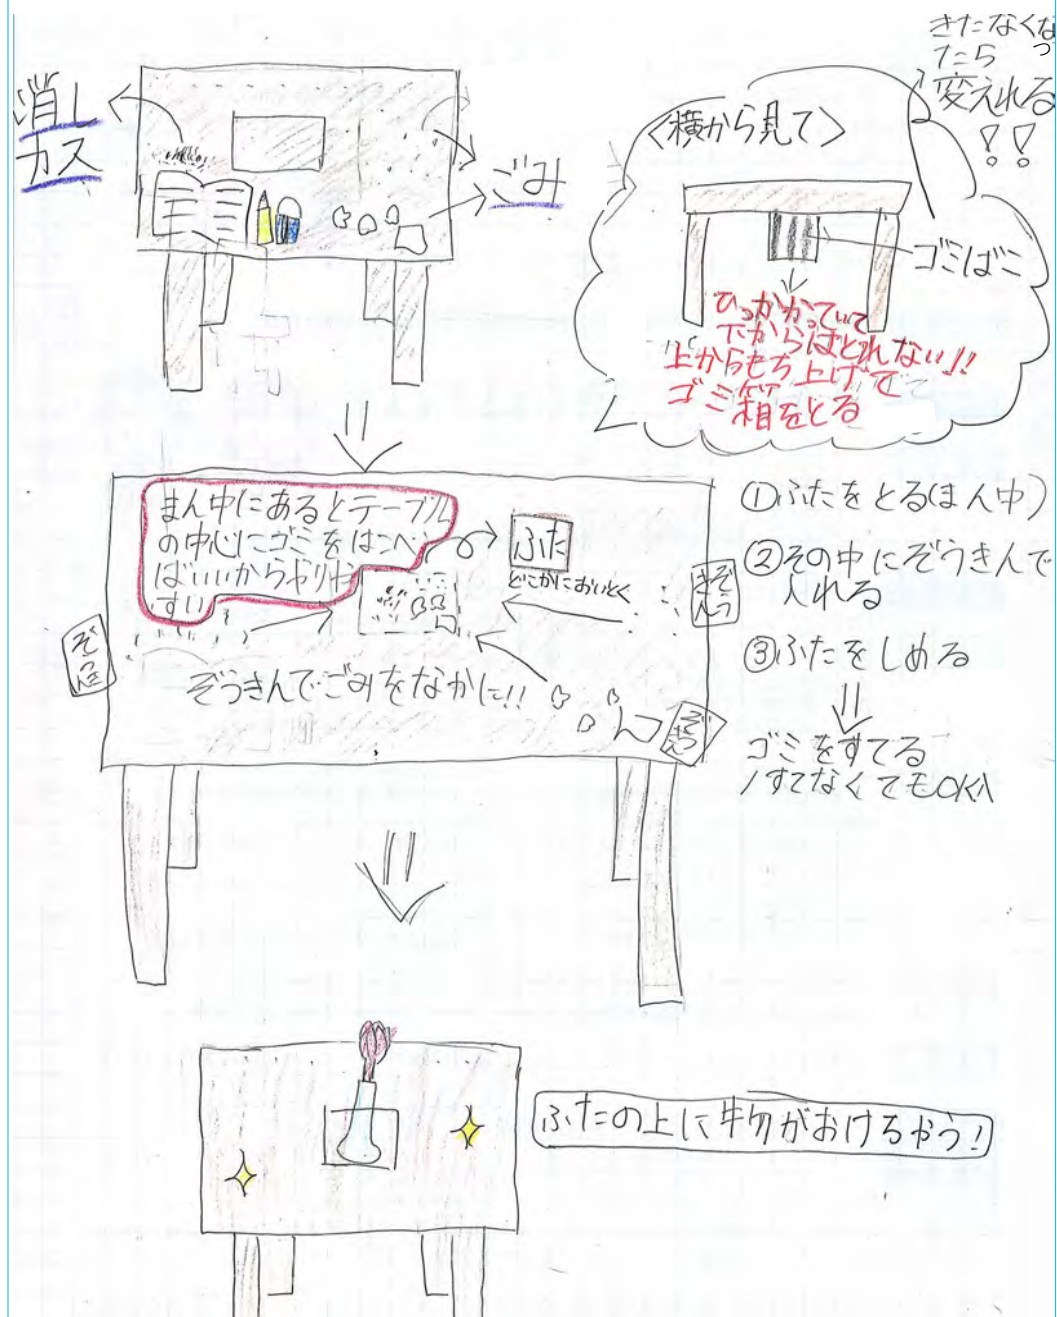 きたなくなっ
たら
変えれる
!!
消し
カス
ごみ
<横から見て>
ゴミばこ
ひっかかっていて
下からはとれない!!
上からもち上げて
ゴミ箱をとる
まん中にあるとテーブル
の中心にゴミをはこべ
ばいいからやりや
すい
ふた
どこかにおいとく
ぞうきん
ぞうきん
ぞうきんでごみをなかに!!
ぞうきん
①ふたをとる(まん中)
②その中にぞうきんで
入れる
③ふたをしめる
ゴミをすてる
(すてなくてもOK)
ふたの上に物がおけるから!